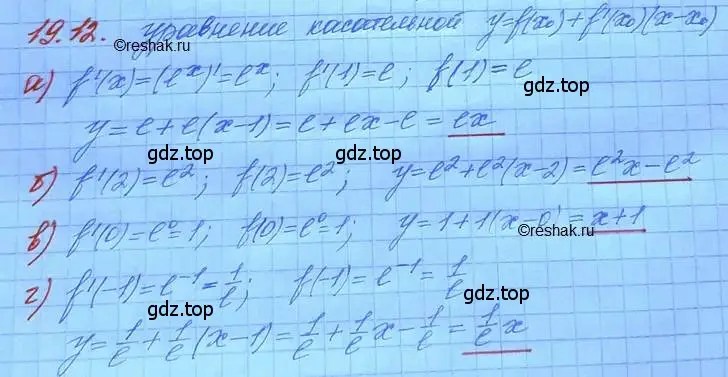 19.12. уравнение касательной y=f(x₀)+f'(x₀)(x-x₀)
©reshak.ru
а) f'(x)=(eˣ)'=eˣ; f'(1)=e; f(1)=e
gdz.top
y=e+e(x-1)=e+ex-e=ex
gdz.top gdz.top
б) f'(2)=e²; f(2)=e²; y=e²+e²(x-2)=e²x-e²
gdz.top
в) f'(0)=e⁰=1; f(0)=e⁰=1; y=1+1(x-0)=x+1
©reshak.ru
г) f'(-1)=e⁻¹=1/e; f(-1)=e⁻¹=1/e
gdz.top gdz.top
y=1/e+1/e(x-1)=1/e+1/e x-1/e=1/e x